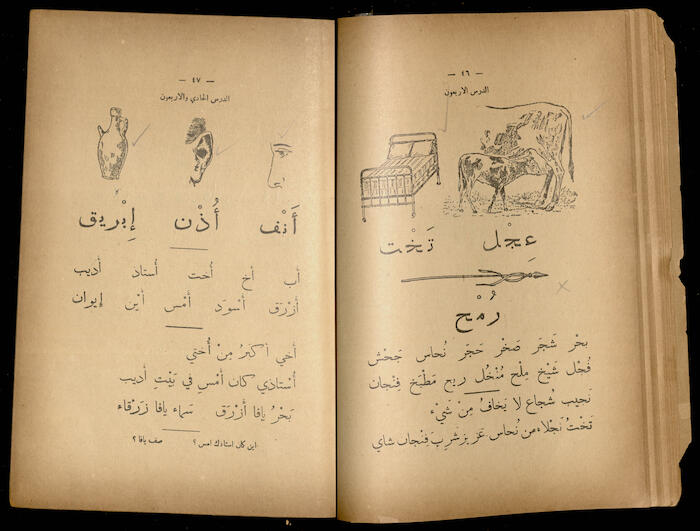 — ٤٦ —
الدرس الاربعون
عِجْل تَخْت
رُمْح
بَحْر شَجَر صَخْر حَجَر نُحاس جَحْش
فُجْل شَيْخ مِلْح مُنْخُل رِيح مَطْبَخ فِنْجان
نَجيب شُجاع لا يَخافُ مِنْ شَيْءٍ
تَخْتُ نَجْلاء من نُحاس عَزيز شَرِبَ فِنْجان شاي
— ٤٧ —
الدرس الحادي والاربعون
أَنْف أُذْن إِبْريق
أب أخ أُخت أُستاذ أديب
أَزْرَق أَسْوَد أَمْس أَيْن إيوان
أَخي أَكبَرُ مِنْ أُخْتي
أُسْتاذي كانَ أَمْسِ في بَيْتِ أديب
بَحْرُ يافا أَزْرَق سَماء يافا زَرْقاء
اين كان استاذك امس ؟ صف يافا ؟